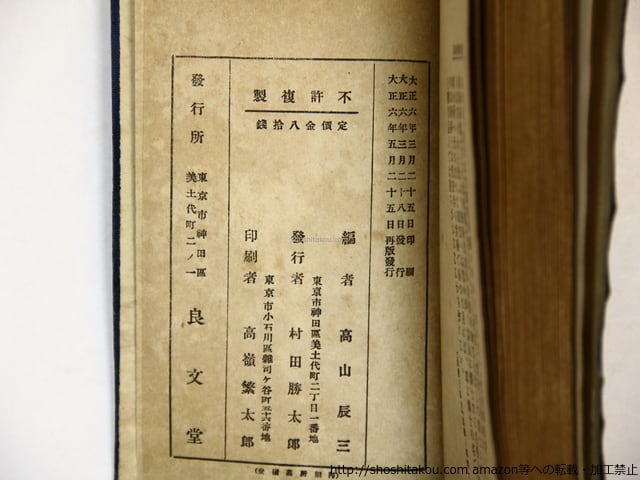 大正六年三月二十五日印刷
大正六年三月二十八日發行
大正六年五月二十五日再版發行
不許複製
定價金八拾錢
編者 高山辰三
東京市神田區美土代町二丁目一番地
發行者 村田勝太郎
東京市小石川區雜司ケ谷町五十六番地
印刷者 高嶺繁太郎
發行所 東京市神田區美土代町二ノ一 良文堂
http://shoshitakou.com amazon等への転載・加工禁止